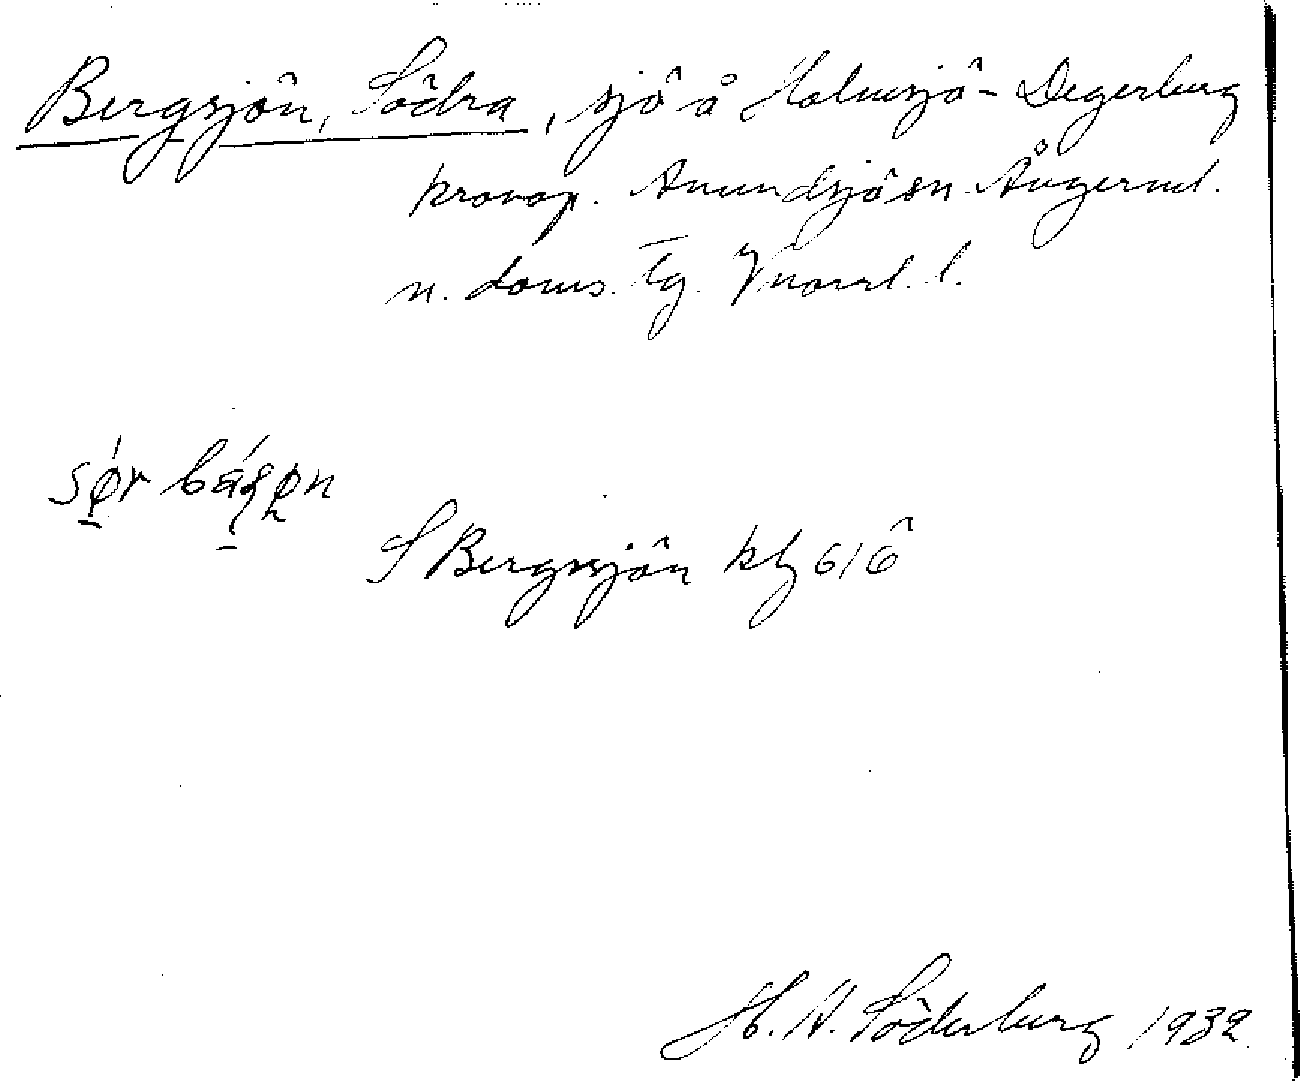 Bergsjön, Södra, sjö å Holmsjö-Degerberg
kronop. Anundsjö sn Ångerml.
n. doms. tg. Vnorrl. l.
sør
S Bergsjön kbl 61 ö
H. A. Söderberg 1932